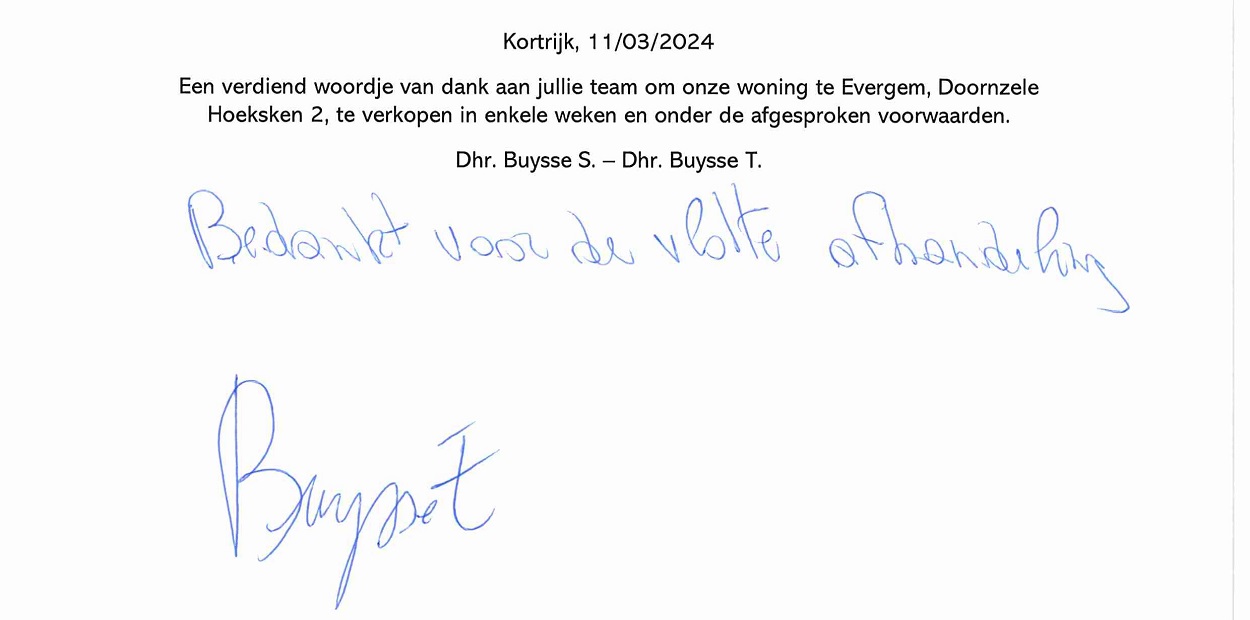 Kortrijk, 11/03/2024
Een verdiend woordje van dank aan jullie team om onze woning te Evergem, Doornzele
Hoeksken 2, te verkopen in enkele weken en onder de afgesproken voorwaarden.
Dhr. Buysse S. – Dhr. Buysse T.
Bedankt voor de vlotte afhandeling
Buysse T